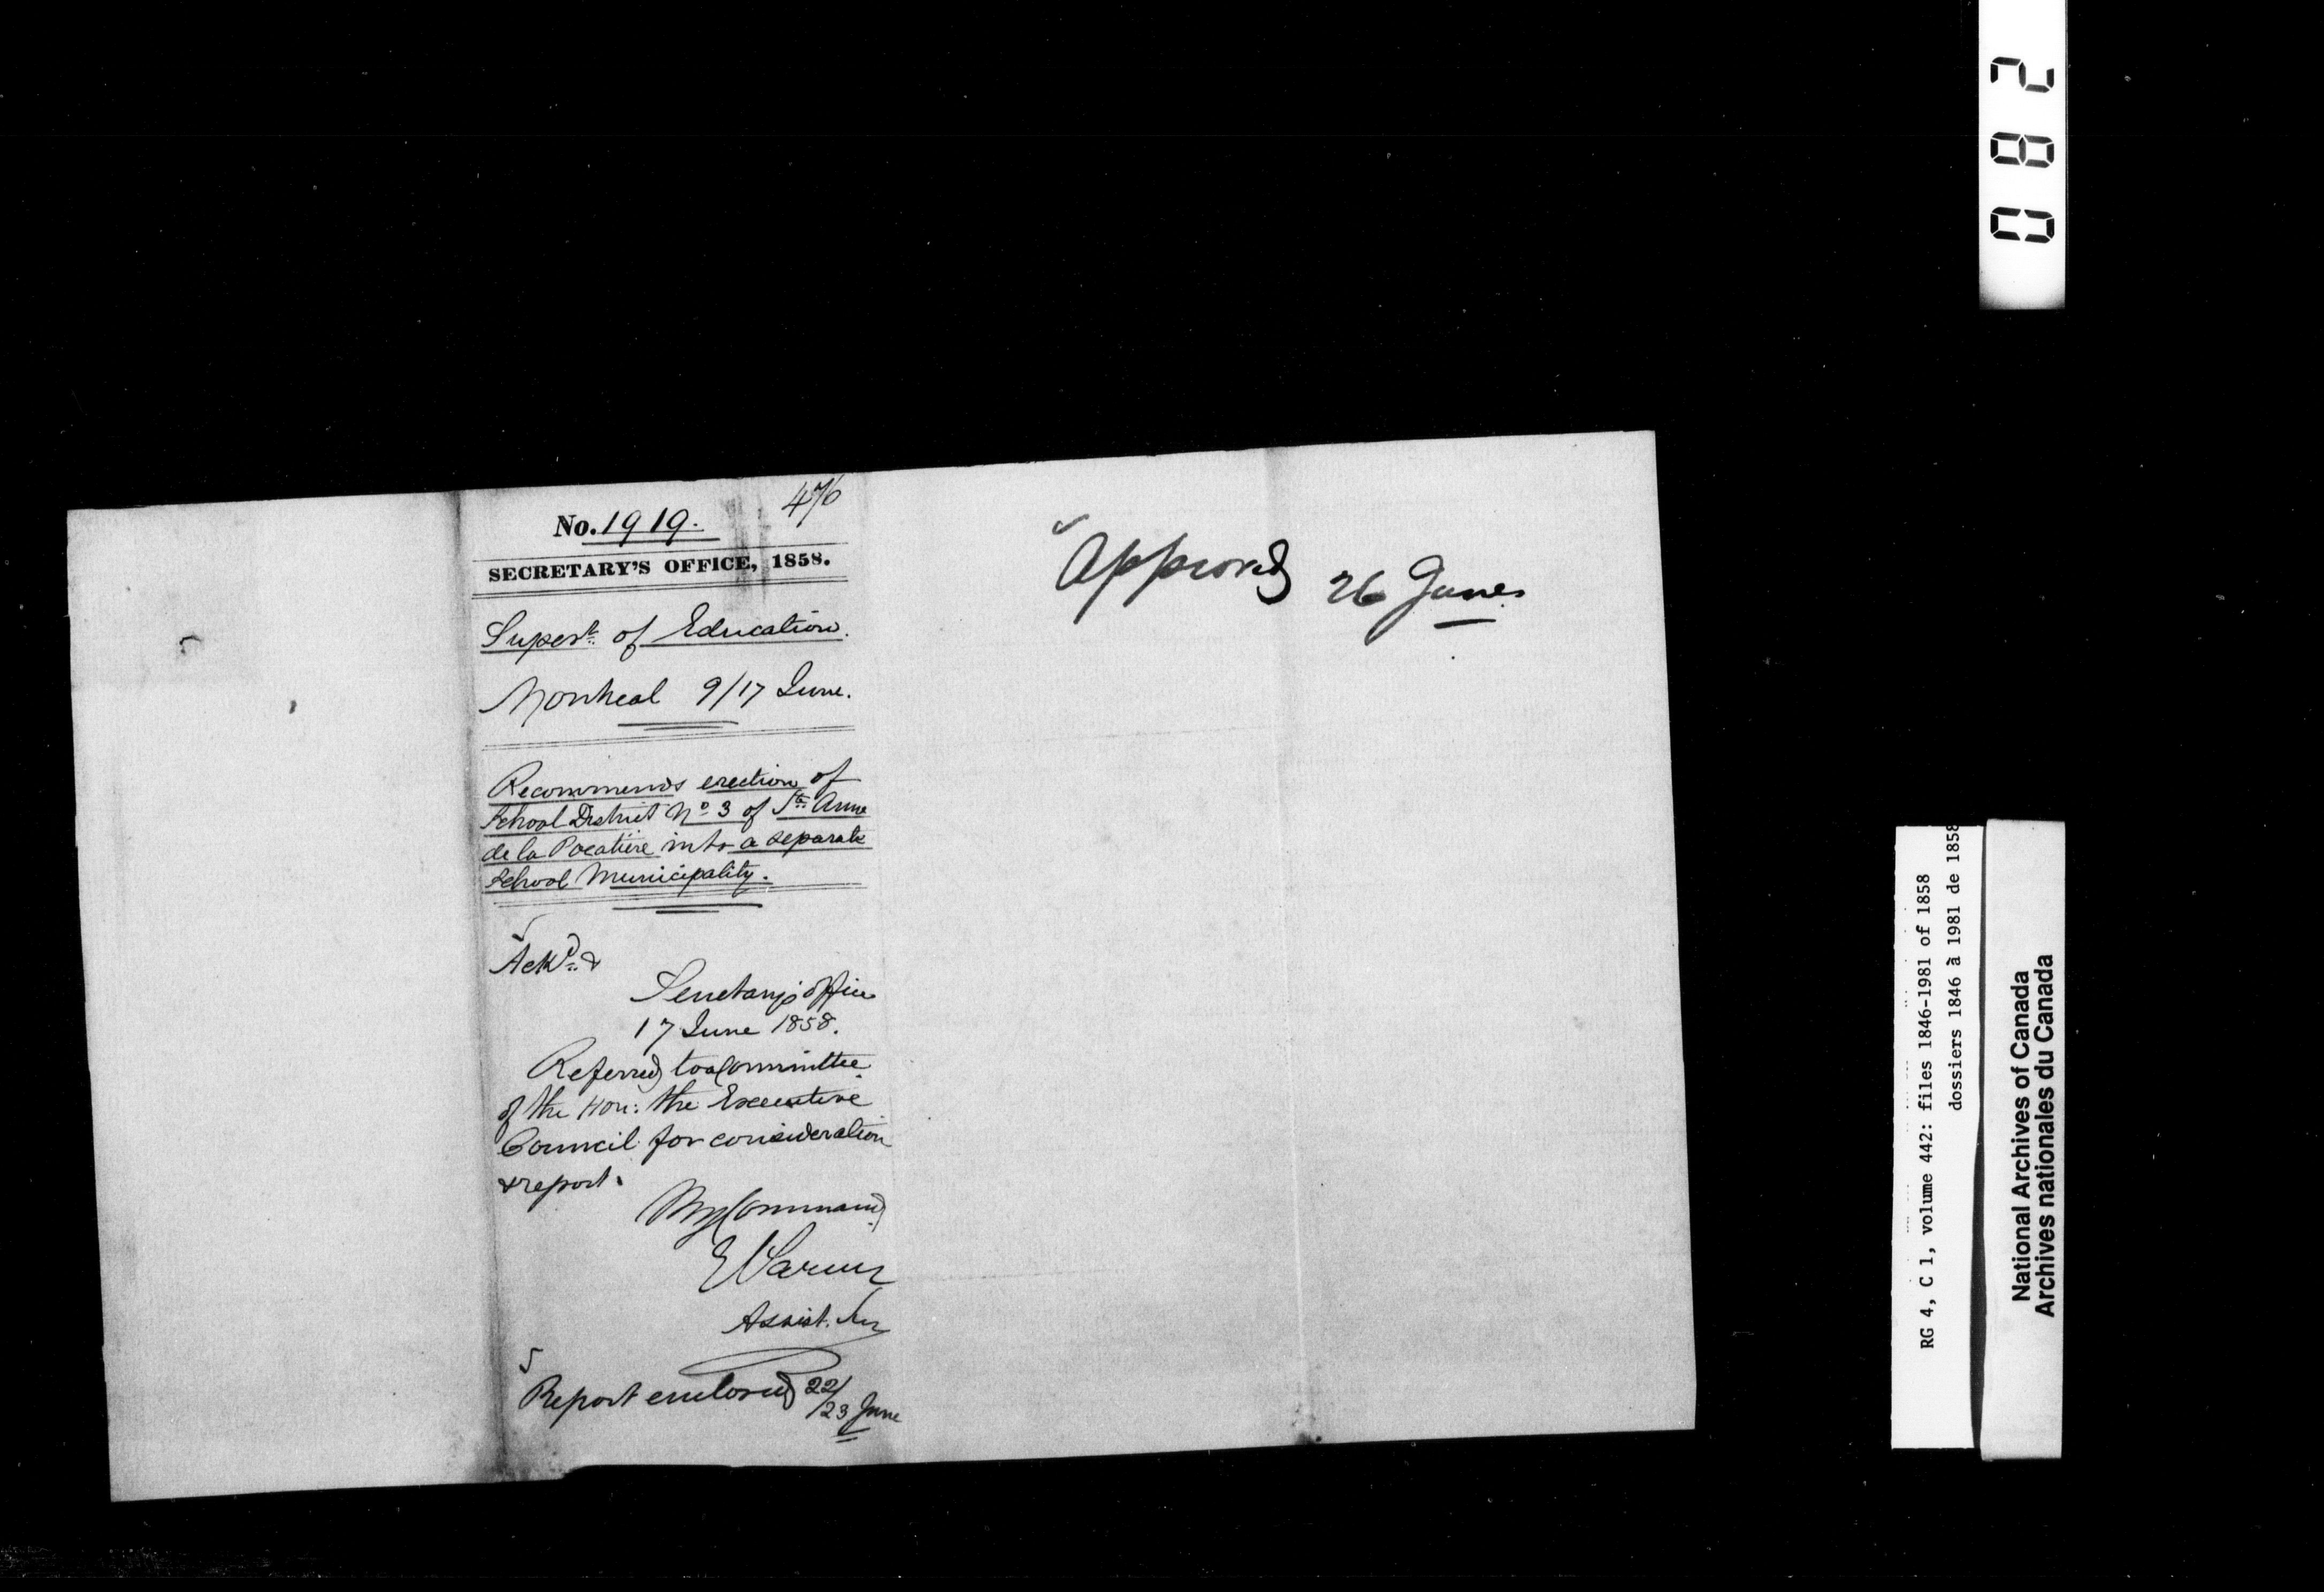 476
No. 1919.
SECRETARY'S OFFICE, 1858.
Supert. of Education.
Montreal 9/17 June.
Recommends erection of
School District No. 3 of Ste. Anne
de la Pocatière into a separate
School Municipality.
Ackd. &
Secretary's office
17 June 1858.
Referred to a Committee
of the Hon: the Executive
Council for consideration
& report.
By Command
Assist. Secy
Report enclosed 22/23 June
Approved 26 June
082
RG 4, C 1, volume 442: files 1846-1981 of 1858
dossiers 1846 à 1981 de 1858
National Archives of Canada
Archives nationales du Canada